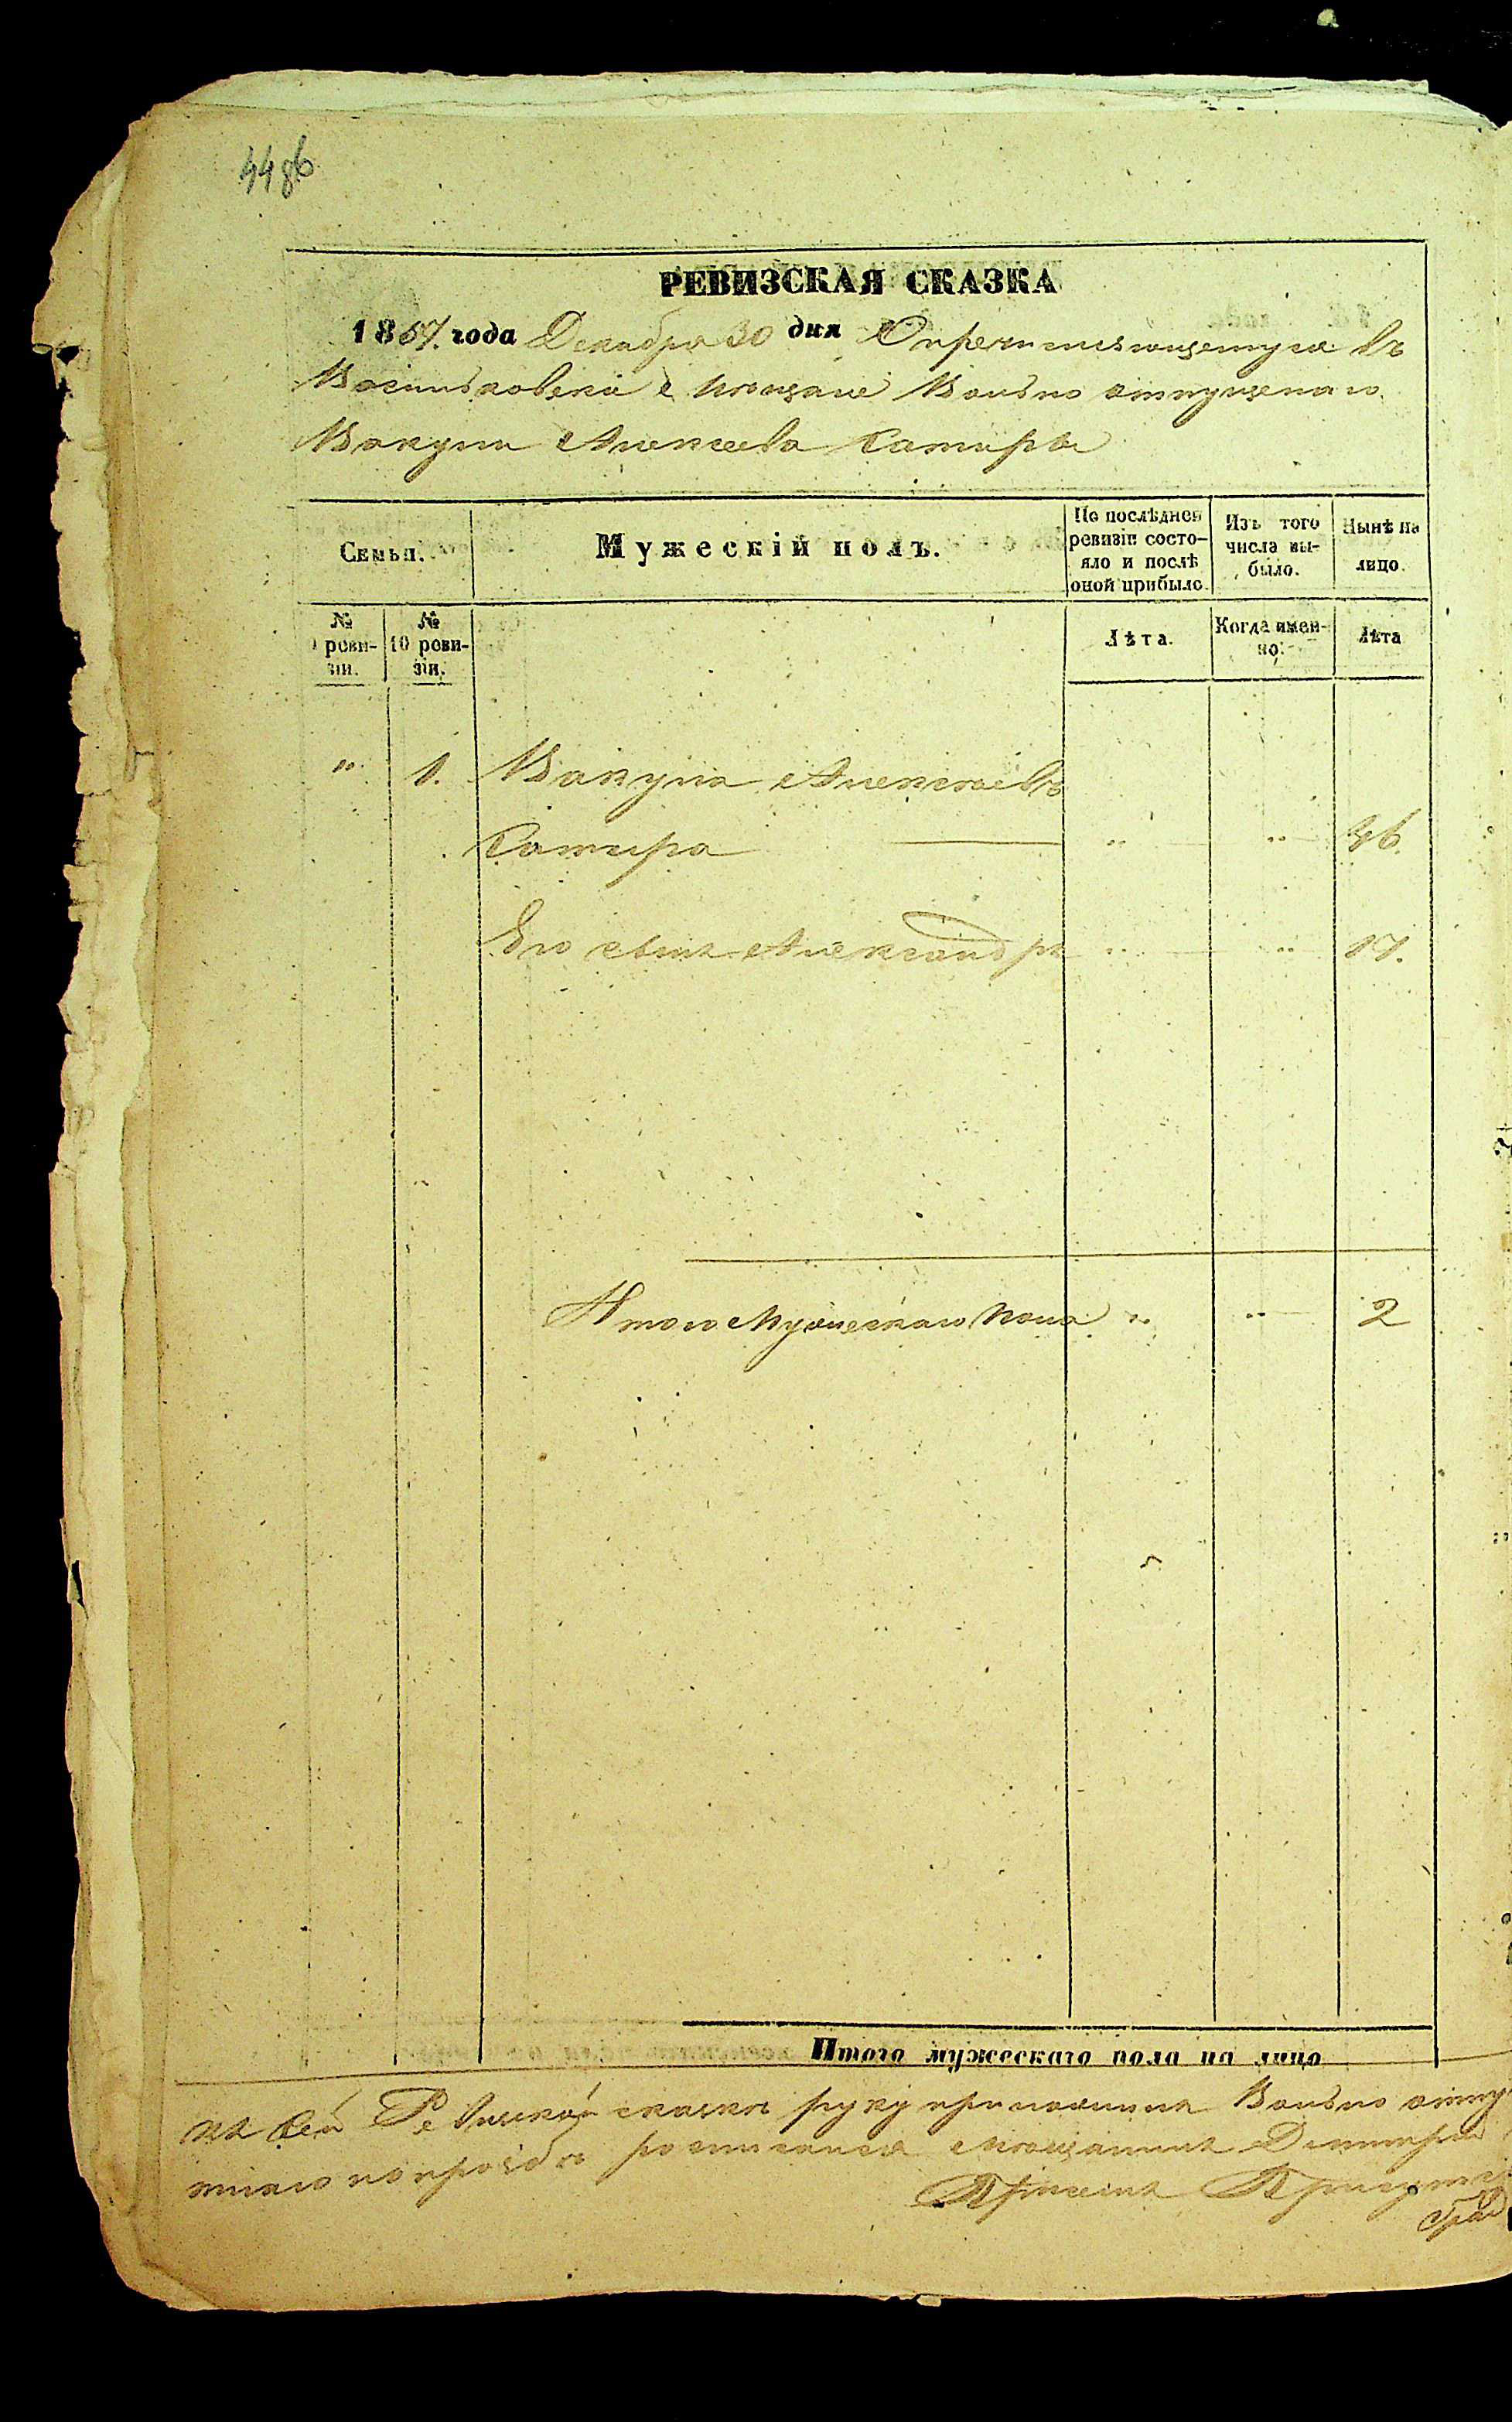 448б
РЕВИЗСКАЯ СКАЗКА
1857. года Декабря 30 дня О причисляющемуся въ
Васильковскіе Мещане Вольно отпущенаго
Вакули Алексеева Сатыры
Семьи.
Мужескій полъ.
По послѣдней ревизіи состо-
яло и послѣ
оной прибыло.
Изъ того
числа вы-
было.
Нынѣ на
лицо.
№
реви-
зіи.
№
10 реви-
зіи.
Лѣта.
Когда имен-
но.
Лѣта
" 1. Вакула Алексѣевъ
Сатыра " " 46.
Его сынъ Александръ " " 17.
Итого Мужескаго Пола " " 2
Итого мужескаго пола на лицо
Къ сей Ревизской сказкѣ руку приложилъ Вольно отпу
по прозбѣ росписался мещанинъ Дмитрій